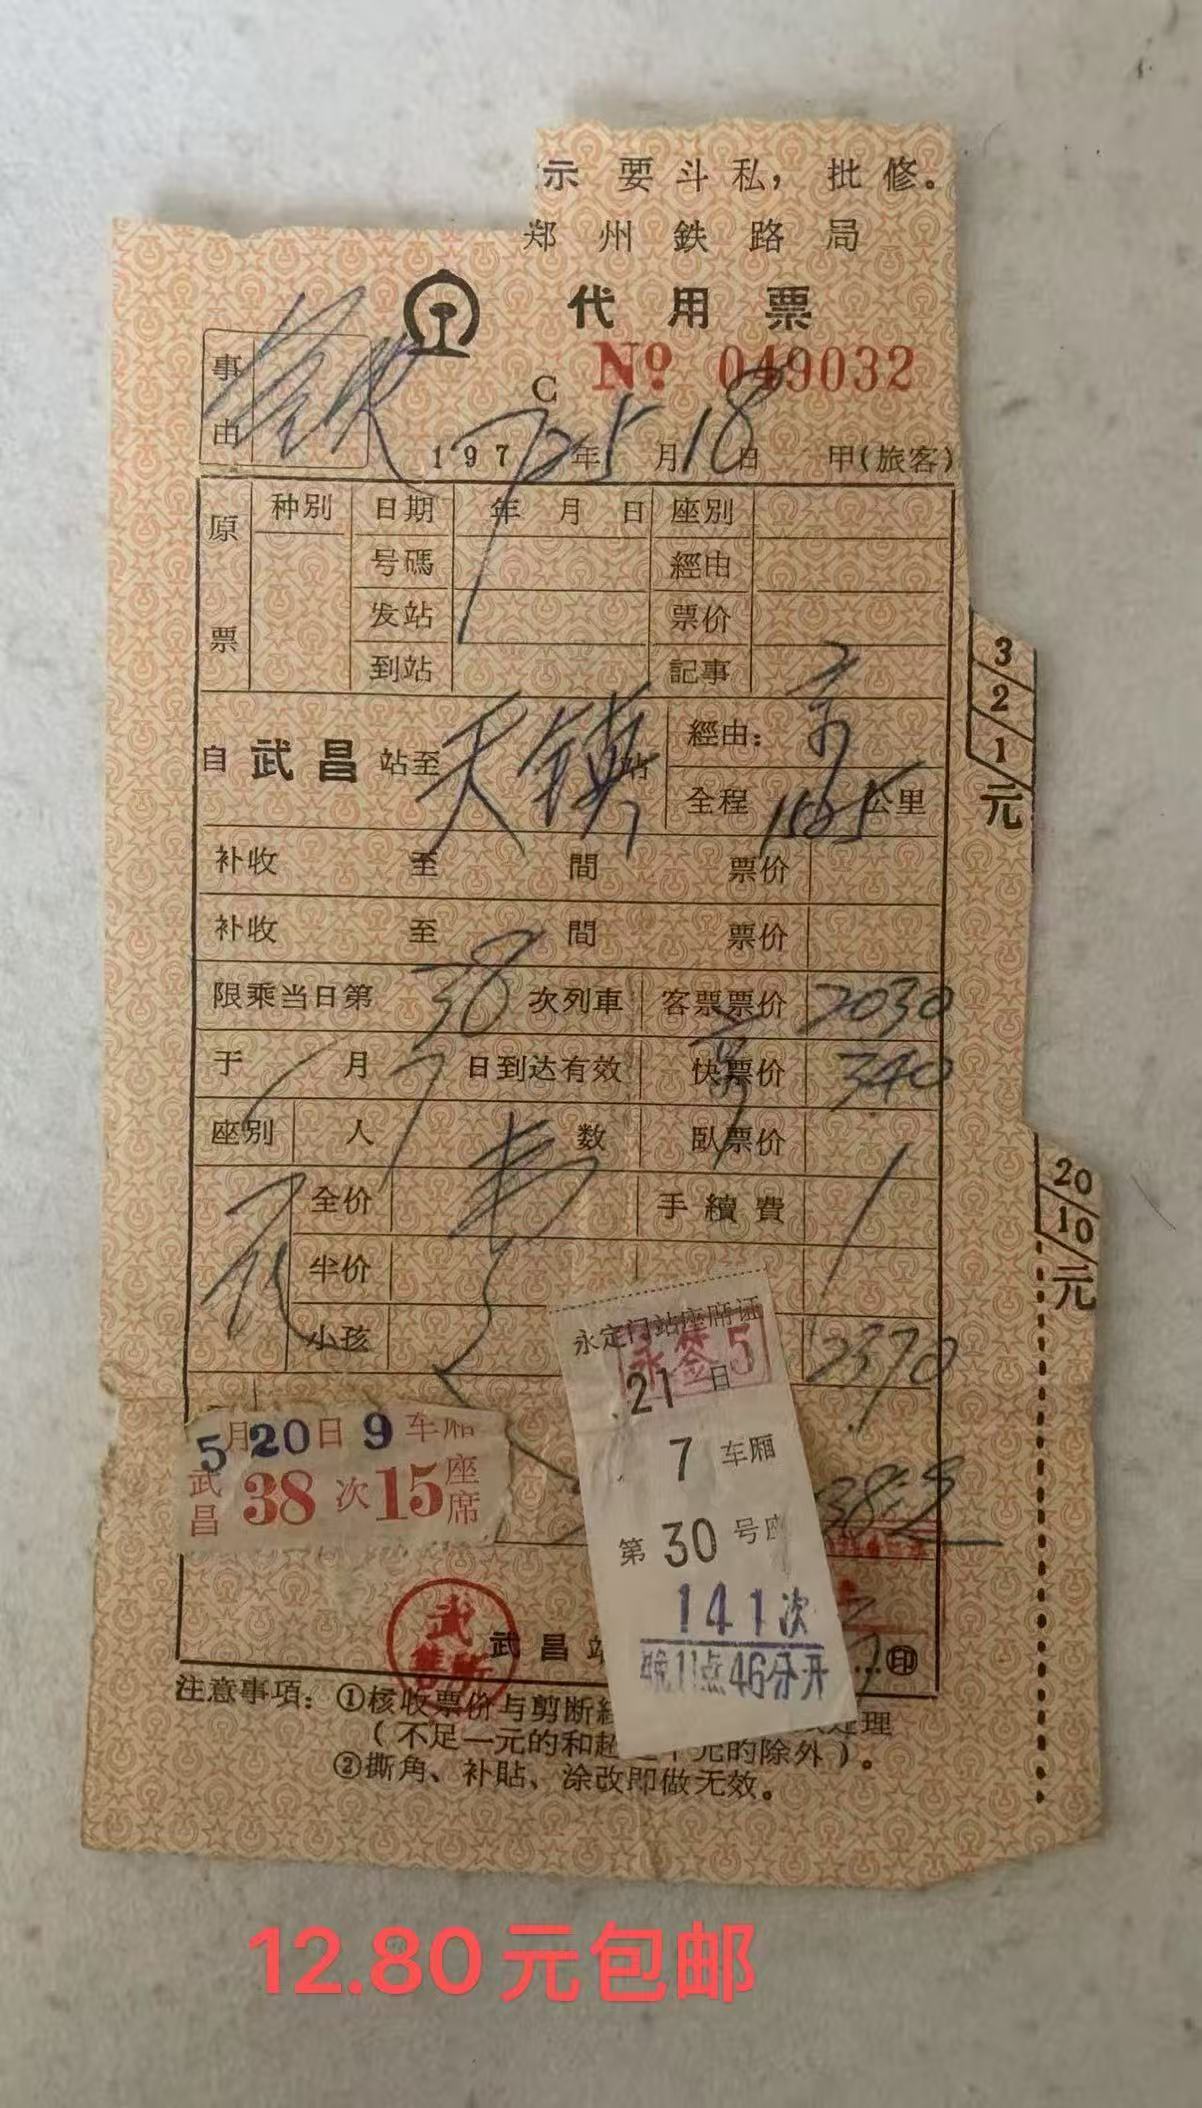 示 要斗私，批修。
郑州鉄路局
代用票
C № 049032
事由
1972年5月18日 甲(旅客)
原票 种別 日期 年 月 日 座別
号碼 經由
发站 票价
到站 記事
3
2
1
元
自 武昌 站至 天鎮 站 經由： 京
全程 1525 公里
补收 至 間 票价
补收 至 間 票价
限乘当日第 38 次列車 客票票价 2030
于 月 7 日到达有效 快票价 340
座別 人 数 臥票价
全价 手續費
半价
小孩 2370
20
10
元
永定门站座席证
永签5
21日
7 车厢
第 30 号
141次
晚11点46分开
5月20日9车厢
武昌 38次15座席
武昌
印
注意事項：①核收票价与剪断 处理
（不足一元的和超 元的除外）。
②撕角、补貼、涂改即做无效。
12.80元包邮